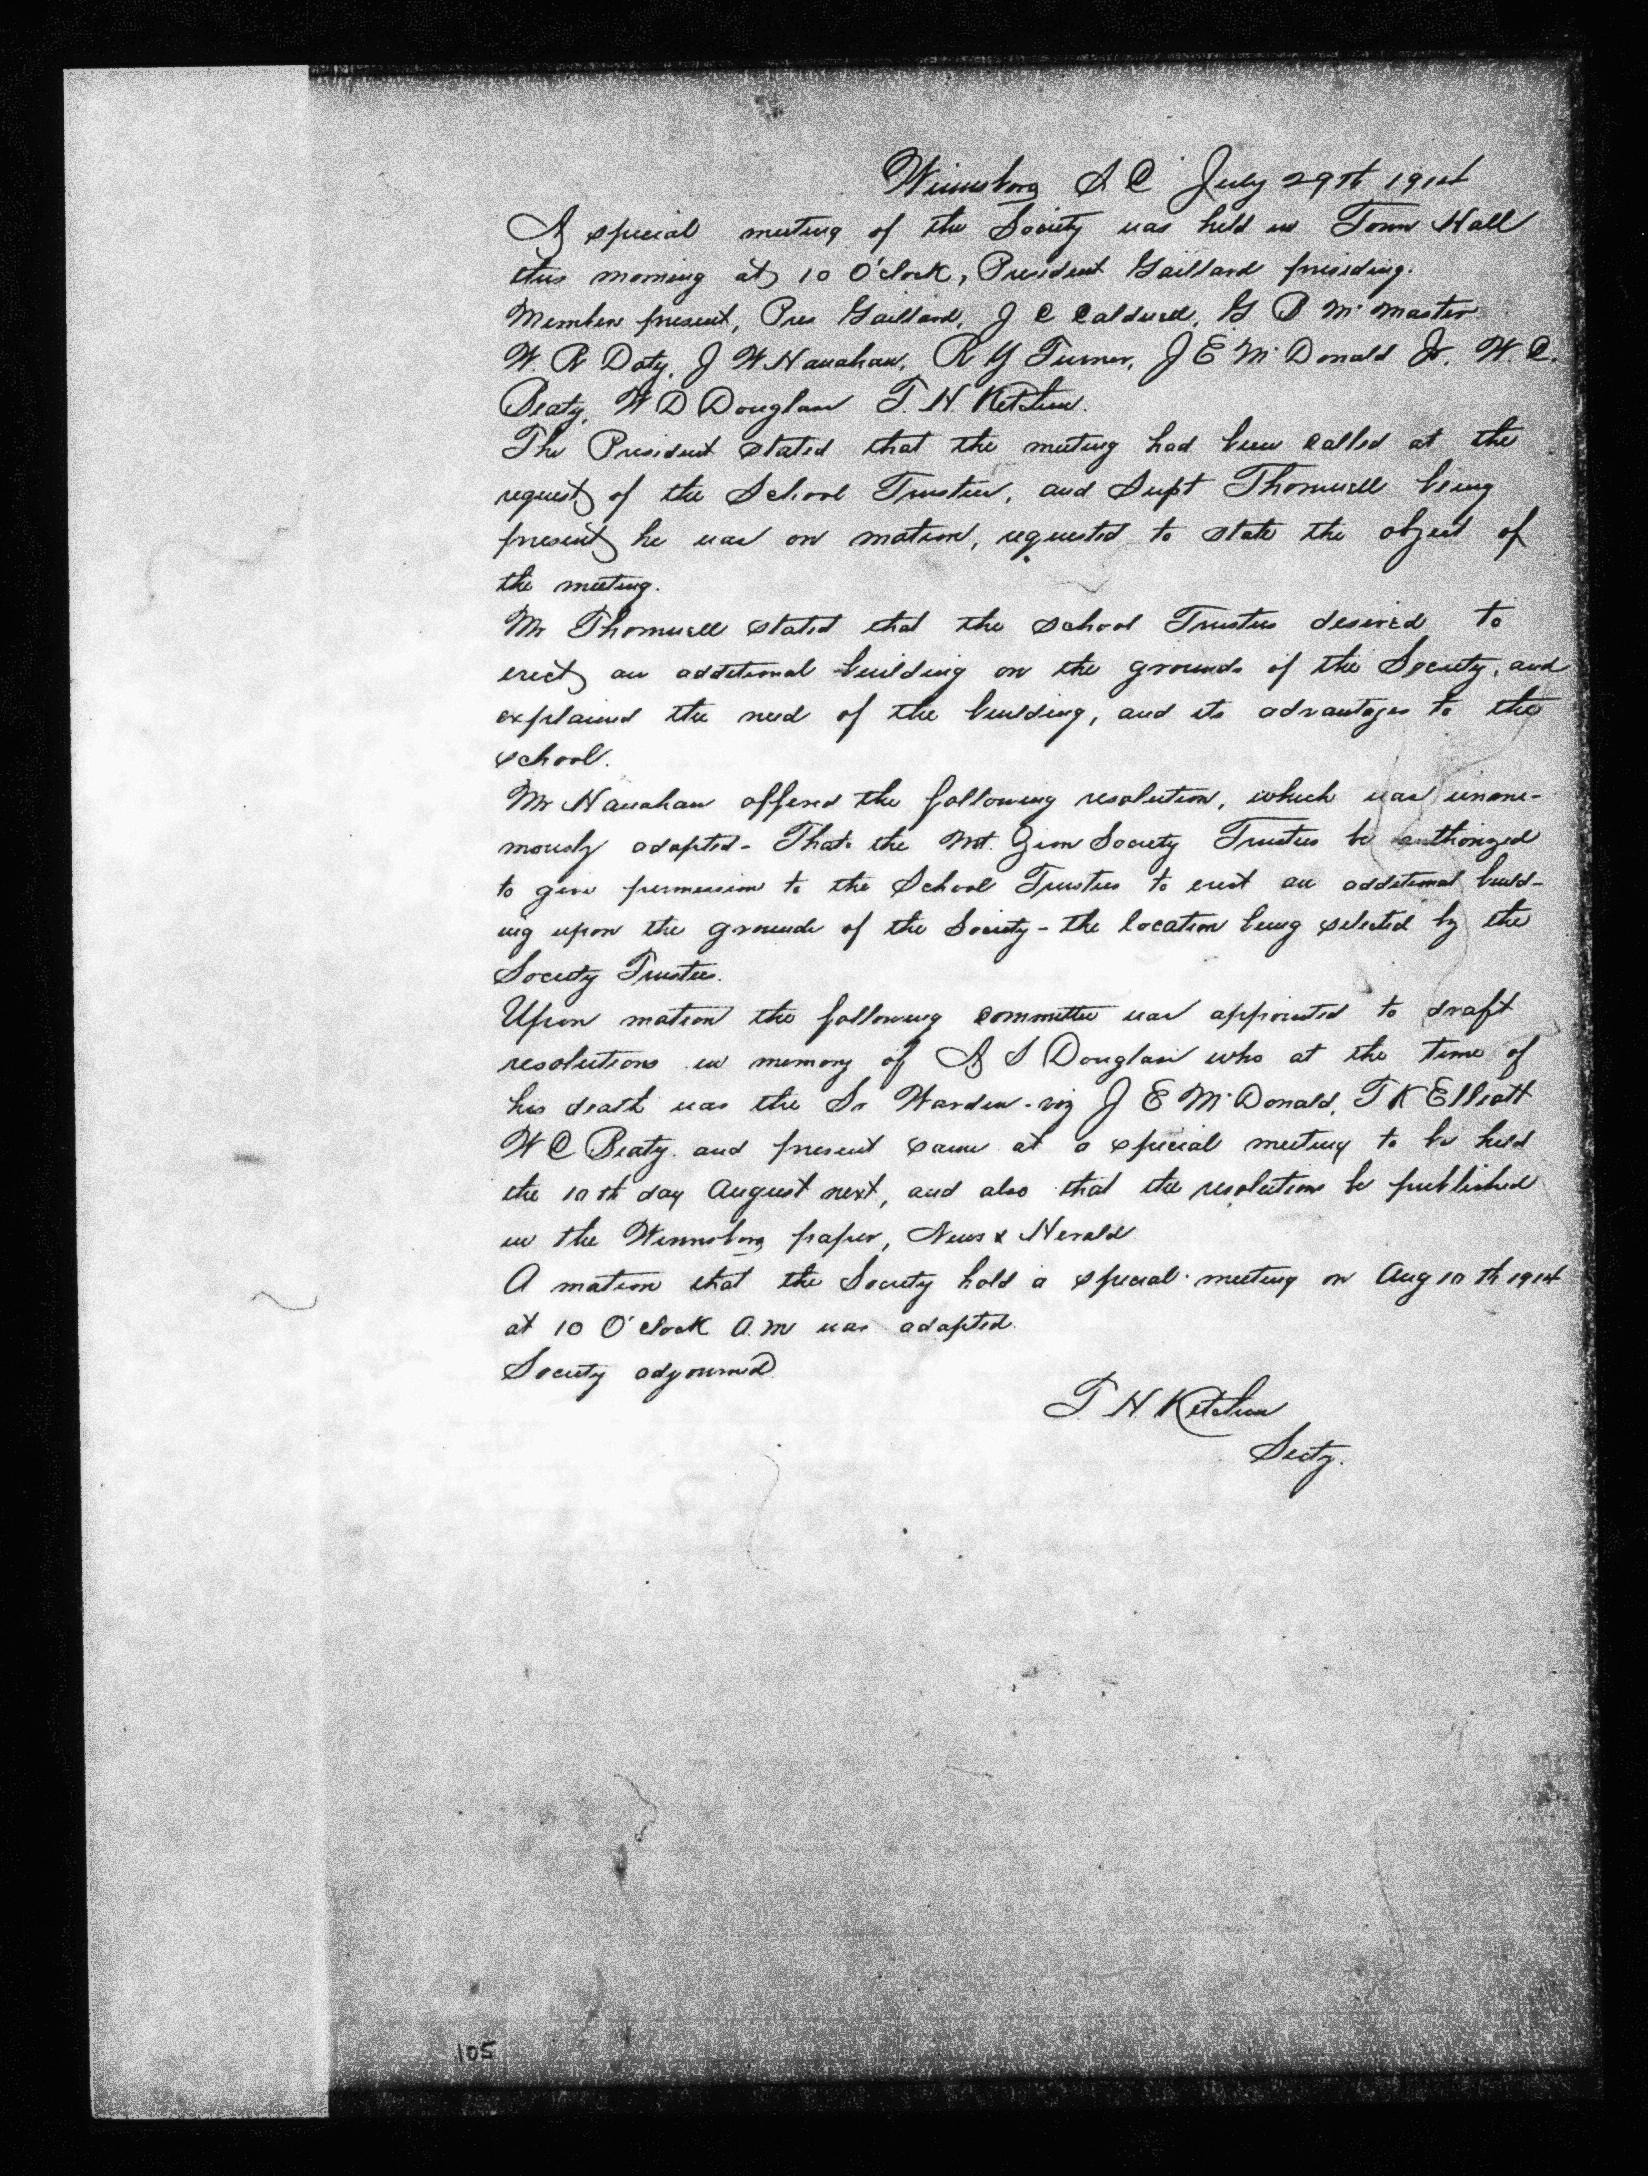 Winnsboro S C July 29th 1914
A special meeting of the Society was held in Town Hall
this morning at 10 O'clock, President Gaillard presiding.
Members present, Pres Gaillard, J C Caldwell, G B McMaster
W. R Doty, J W Hanahan, R Y Turner, J E McDonald Jr, W C.
Beaty, W D Douglass T. H. Ketchin.
The President stated that the meeting had been called at the
request of the School Trustees, and Supt Thornwell being
present he was on motion, requested to state the object of
the meeting.
Mr Thornwell stated that the school Trustees desired to
erect an additional building on the grounds of the Society, and
explained the need of the building, and its advantages to the
school.
Mr Hanahan offered the following resolution, which was unani-
mously adopted - That the Mt. Zion Society Trustees be authorized
to give permission to the School Trustees to erect an additional build-
ing upon the grounds of the Society - the location being selected by the
Society Trustees.
Upon motion the following committee was appointed to draft
resolutions in memory of A S Douglass who at the time of
his death was the Sr Warden - viz J E McDonald, T K Elliott
W C Beaty. and present same at a special meeting to be held
the 10th day August next, and also that the resolutions be published
in the Winnsboro paper, News & Herald
A motion that the Society hold a special meeting on Aug 10th 1914
at 10 O'clock A.M was adopted.
Society adjourned
T H Ketchin
Secty.
105